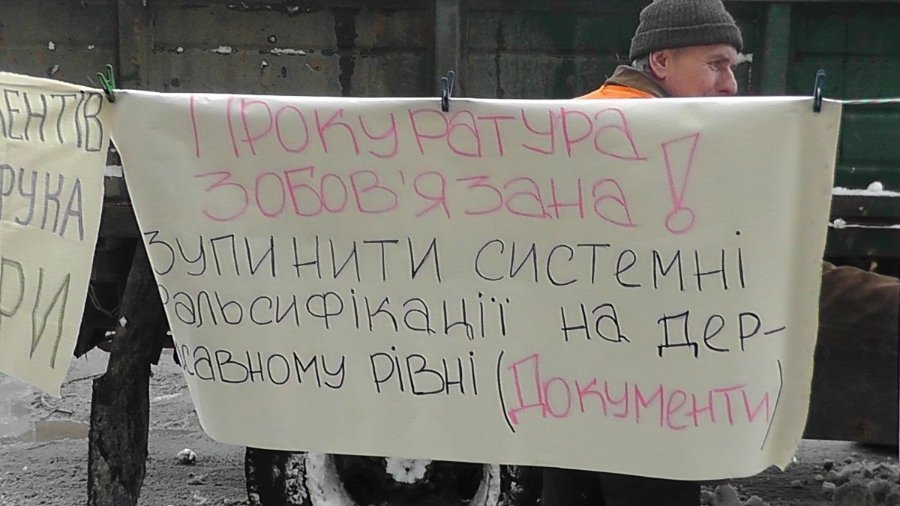 ЕНТІВ
РУКА
РИ
Прокуратура
зобов'язана!
зупинити системні
фальсифікації на дер-
жавному рівні (Документи)